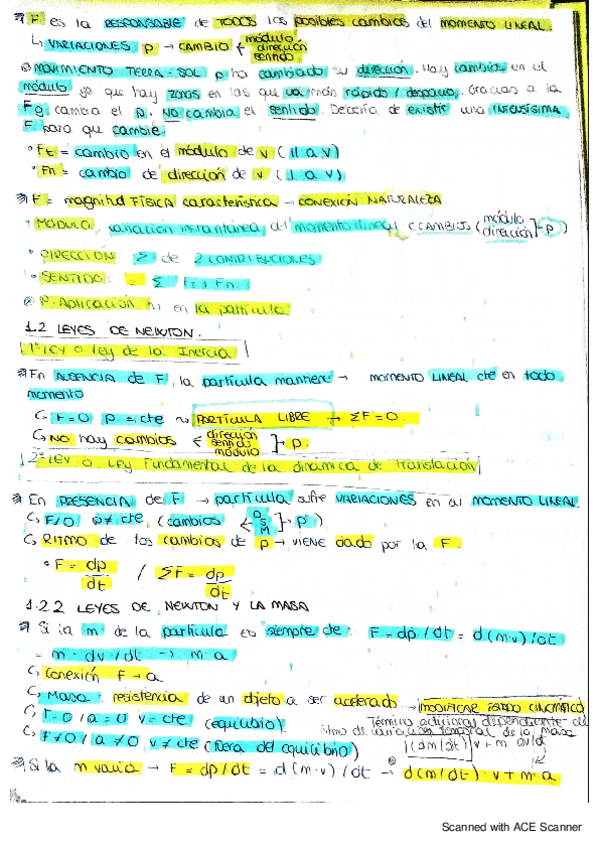 F es la RESPONSABLE de TODOS los posibles cambios del MOMENTO LINEAL.
VARIACIONES p → CAMBIO módulo dirección sentido
MOVIMIENTO TIERRA-SOL p ha cambiado su dirección. Hay cambios en el
módulo ya que hay zonas en las que va más rápido / despacio. Gracias a la
Fg cambia el p. NO cambia el sentido. Debería de existir una
F para que cambie
Ft = cambio en el módulo de v (∥ a v)
Fn = cambio de dirección de v (⊥ a v)
F = magnitud FÍSICA característica → CONEXIÓN NATURALEZA
MÓDULO: variación instantánea del momento lineal (CAMBIOS (módulo dirección] p)
DIRECCIÓN: Σ de 2 CONTRIBUCIONES
SENTIDO: = Σ Ft + Fn
P. APLICACIÓN en la partícula
1.2 LEYES DE NEWTON.
1ª ley o ley de la Inercia
En AUSENCIA de F, la partícula mantiene → MOMENTO LINEAL cte en todo
momento
F=0 p = cte PARTÍCULA LIBRE → ΣF=0
NO hay cambios dirección sentido módulo ] p.
2ª ley o Ley Fundamental de la dinámica de Translación
En PRESENCIA de F → partícula sufre VARIACIONES en su MOMENTO LINEAL
F≠0 p≠cte (cambios D S M ] p)
RITMO de los cambios de p → VIENE dado por la F.
F = dp/dt / ΣF = dp/dt
1.2.2 LEYES DE NEWTON Y LA MASA
Si la m de la partícula es siempre cte: F = dp/dt = d(m·v)/dt
= m · dv/dt → m·a
Conexión F → a
Masa: resistencia de un objeto a ser acelerado → MODIFICAR ESTADO CINEMÁTICO
F=0 / a=0 v=cte (equilibrio)
F≠0 / a≠0 v≠cte (fuera del equilibrio)
Término adicional dependiente del
ritmo de variación temporal de la masa
(dm/dt) v + m dv/dt
Si la m varía → F = dp/dt = d(m·v)/dt → d(m/dt)·v + m·a
Scanned with ACE Scanner